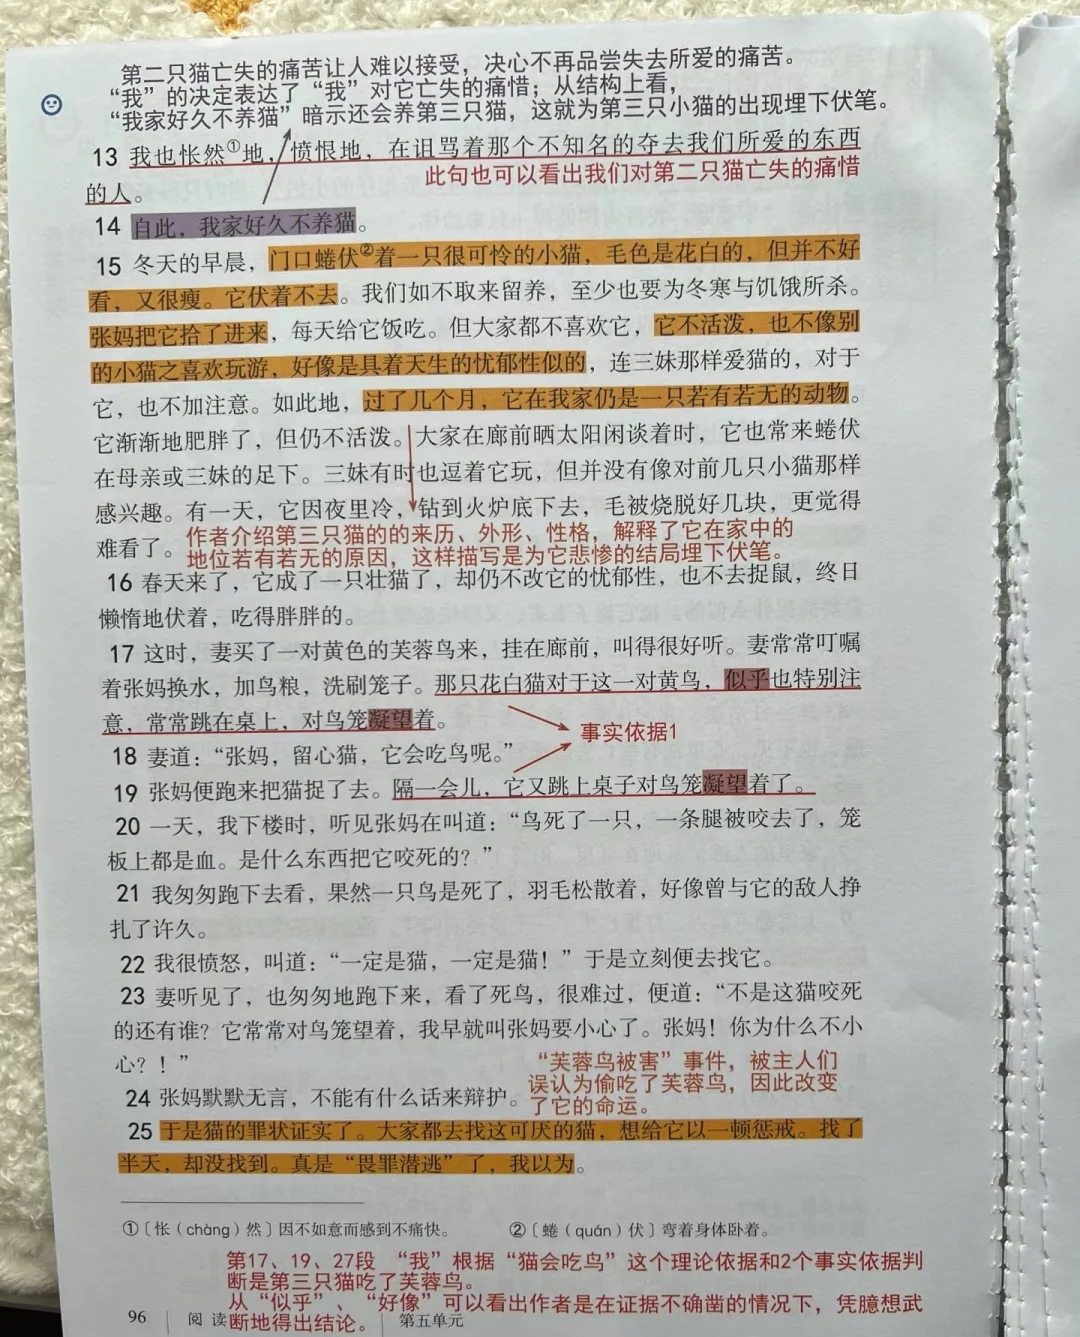 第二只猫亡失的痛苦让人难以接受，决心不再品尝失去所爱的痛苦。
“我”的决定表达了“我”对它亡失的痛惜；从结构上看，
“我家好久不养猫”暗示还会养第三只猫，这就为第三只小猫的出现埋下伏笔。
13 我也怅然①地，愤恨地，在诅骂着那个不知名的夺去我们所爱的东西
此句也可以看出我们对第二只猫亡失的痛惜
的人。
14 自此，我家好久不养猫。
15 冬天的早晨，门口蜷伏②着一只很可怜的小猫，毛色是花白的，但并不好
看，又很瘦。它伏着不去。我们如不取来留养，至少也要为冬寒与饥饿所杀。
张妈把它拾了进来，每天给它饭吃。但大家都不喜欢它，它不活泼，也不像别
的小猫之喜欢玩游，好像是具着天生的忧郁性似的，连三妹那样爱猫的，对于
它，也不加注意。如此地，过了几个月，它在我家仍是一只若有若无的动物。
它渐渐地肥胖了，但仍不活泼。大家在廊前晒太阳闲谈着时，它也常来蜷伏
在母亲或三妹的足下。三妹有时也逗着它玩，但并没有像对前几只小猫那样
感兴趣。有一天，它因夜里冷，钻到火炉底下去，毛被烧脱好几块，更觉得
难看了。
作者介绍第三只猫的的来历、外形、性格，解释了它在家中的
地位若有若无的原因，这样描写是为它悲惨的结局埋下伏笔。
16 春天来了，它成了一只壮猫了，却仍不改它的忧郁性，也不去捉鼠，终日
懒惰地伏着，吃得胖胖的。
17 这时，妻买了一对黄色的芙蓉鸟来，挂在廊前，叫得很好听。妻常常叮嘱
着张妈换水，加鸟粮，洗刷笼子。那只花白猫对于这一对黄鸟，似乎也特别注
意，常常跳在桌上，对鸟笼凝望着。
事实依据1
18 妻道：“张妈，留心猫，它会吃鸟呢。”
19 张妈便跑来把猫捉了去。隔一会儿，它又跳上桌子对鸟笼凝望着了。
20 一天，我下楼时，听见张妈在叫道：“鸟死了一只，一条腿被咬去了，笼
板上都是血。是什么东西把它咬死的？”
21 我匆匆跑下去看，果然一只鸟是死了，羽毛松散着，好像曾与它的敌人挣
扎了许久。
22 我很愤怒，叫道：“一定是猫，一定是猫！”于是立刻便去找它。
23 妻听见了，也匆匆地跑下来，看了死鸟，很难过，便道：“不是这猫咬死
的还有谁？它常常对鸟笼望着，我早就叫张妈要小心了。张妈！你为什么不小
心？！”
“芙蓉鸟被害”事件，被主人们
误认为偷吃了芙蓉鸟，因此改变
了它的命运。
24 张妈默默无言，不能有什么话来辩护。
25 于是猫的罪状证实了。大家都去找这可厌的猫，想给它以一顿惩戒。找了
半天，却没找到。真是“畏罪潜逃”了，我以为。
①〔怅（chàng）然〕因不如意而感到不痛快。 ②〔蜷（quán）伏〕弯着身体卧着。
第17、19、27段 “我”根据“猫会吃鸟”这个理论依据和2个事实依据判
断是第三只猫吃了芙蓉鸟。
从“似乎”、“好像”可以看出作者是在证据不确凿的情况下，凭臆想武
断地得出结论。
96 阅读 第五单元